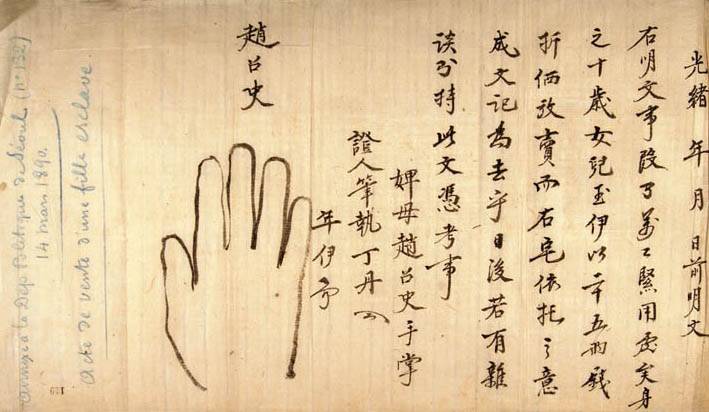 光緒 年 月 日前明文
右明文事段 萬〻緊用處矣身
之十歲女兒玉伊以 五兩錢
折価放賣而右宅依托之意
成文記為去乎日後若有雜
談 持此文憑考事
婢母趙召史手掌
證人筆執丁丹
年伊
趙召史
Annexe à la Dép. Politique de Séoul (n° 132)
14 mars 1890.
Acte de vente d'une fille esclave